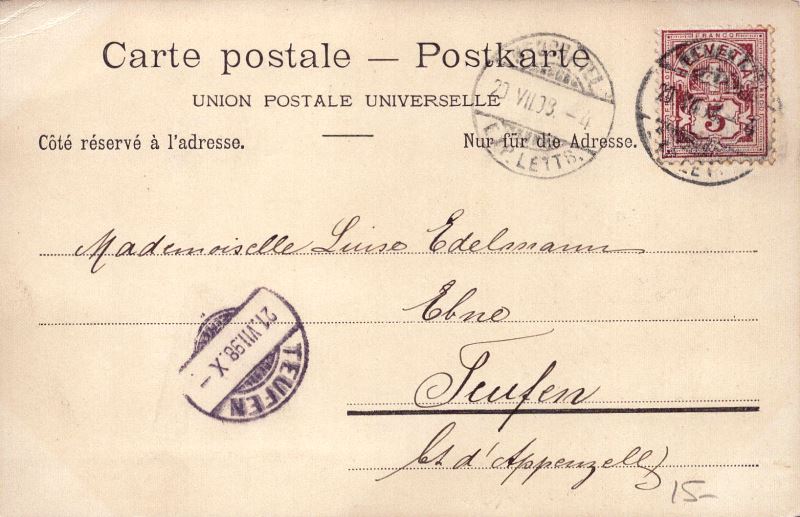 Carte postale — Postkarte
UNION POSTALE UNIVERSELLE
Côté réservé à l'adresse.
Nur für die Adresse.
EXP. LETTR.
HELVETIA
FRANCO
5
Mademoiselle Luise Edelmann
Ebne
Teufen
Ct d'Appenzell)
21.VII.98.X–
TEUFEN
15–